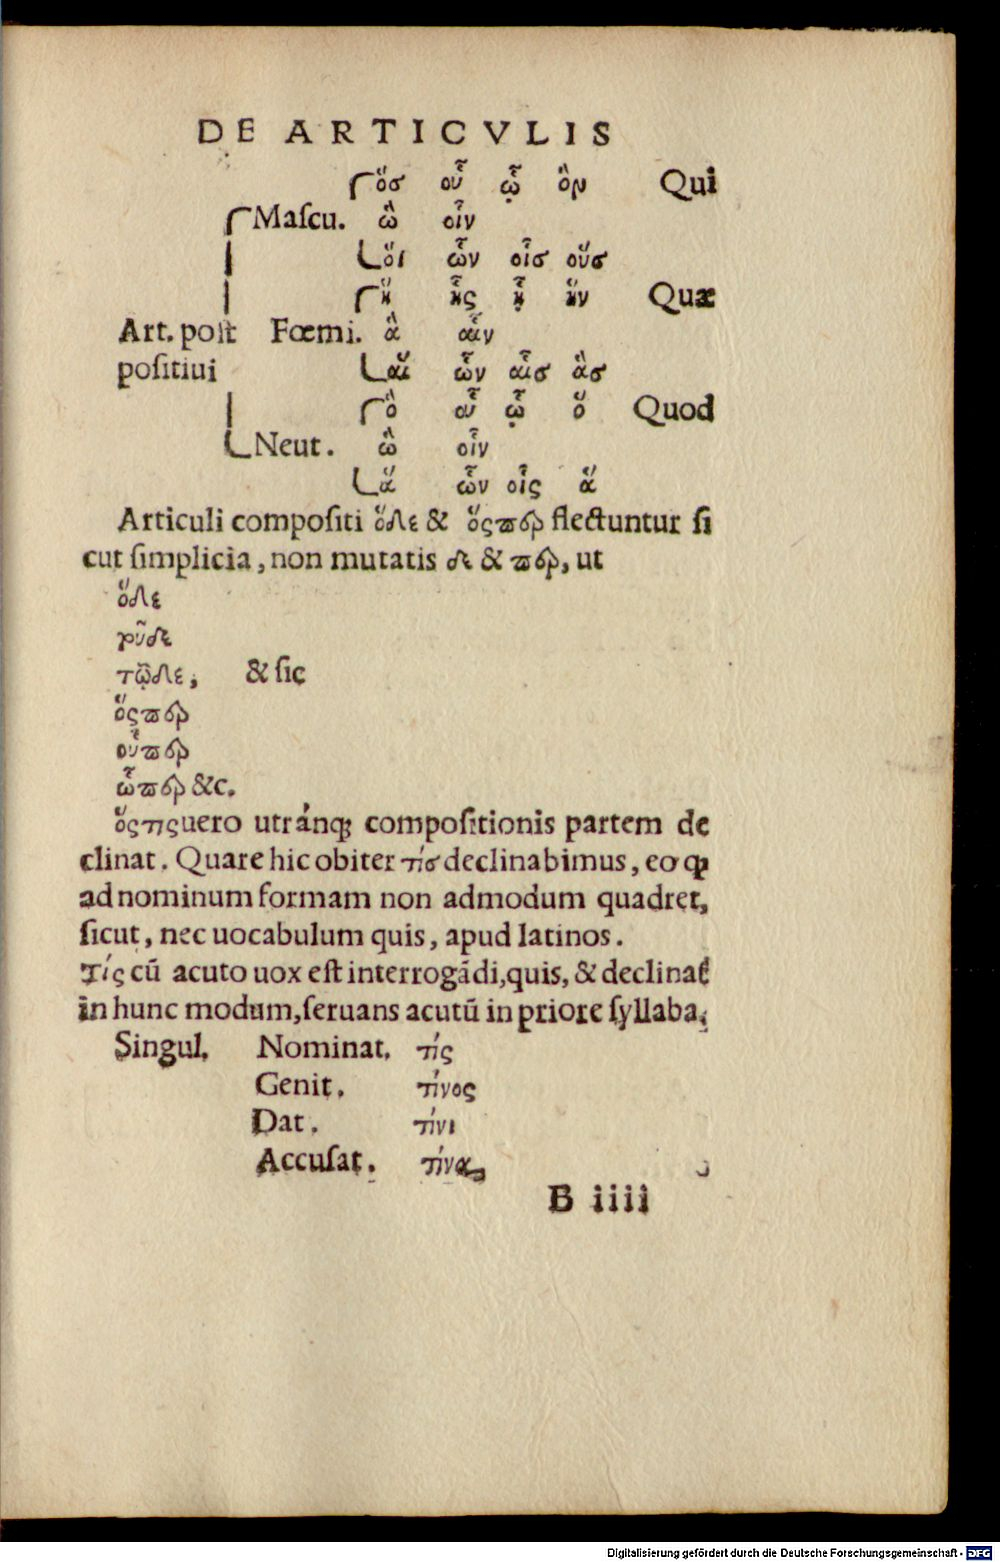 DE ARTICVLIS
ὅσ οὗ ᾧ ὃν Qui
Maſcu. ὣ οἷν
ὅι ὧν οἷσ οὕσ
ἥ ἧς ᾗ ἥν Quæ
Art. poſt Fœmi. ἃ αἷν
poſitiui αἵ ὧν αἷσ ἃσ
ὃ οὗ ᾧ ὅ Quod
Neut. ὣ οἷν
ἅ ὧν οἷς ἅ
Articuli compoſiti ὅδε & ὅςπερ flectuntur ſi
cut ſimplicia, non mutatis δε & περ, ut
ὅδε
τοῦδε
τῷδε, & ſic
ὅςπερ
οὗπερ
ὧπερ &c.
ὅςτις uero utránq; compoſitionis partem de
clinat. Quare hic obiter τίσ declinabimus, eo ꝙ
ad nominum formam non admodum quadret,
ſicut, nec uocabulum quis, apud latinos.
Τίς cū acuto uox eſt interrogādi, quis, & declinat́
in hunc modum, ſeruans acutū in priore ſyllaba.
Singul. Nominat. τίς
Genit. τίνος
Dat. τίνι
Accuſat. τίνα
B iiii
Digitalisierung gefördert durch die Deutsche Forschungsgemeinschaft - DFG